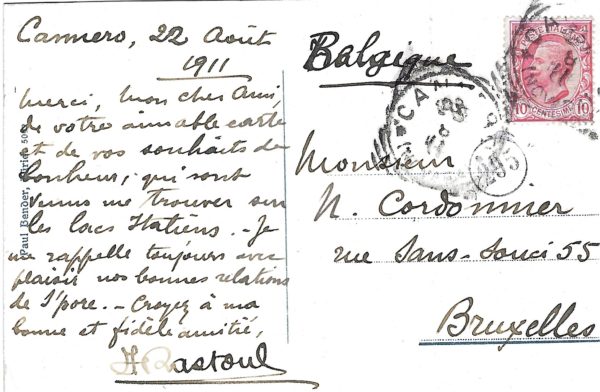 Cannero, 22 Août
1911
Merci, mon cher Ami,
de votre aimable carte
et de vos souhaits de
bonheur, qui sont
venus me trouver sur
les lacs Italiens. - Je
me rappelle toujours avec
plaisir nos bonnes relations
de S'pore. - Croyez à ma
bonne et fidèle amitié,
A Rastoul
Paul Bender, Zürich
Balgique
Monsieur
N. Cordonnier
rue Sans-Souci 55
Bruxelles
10 CENTESIMI 10